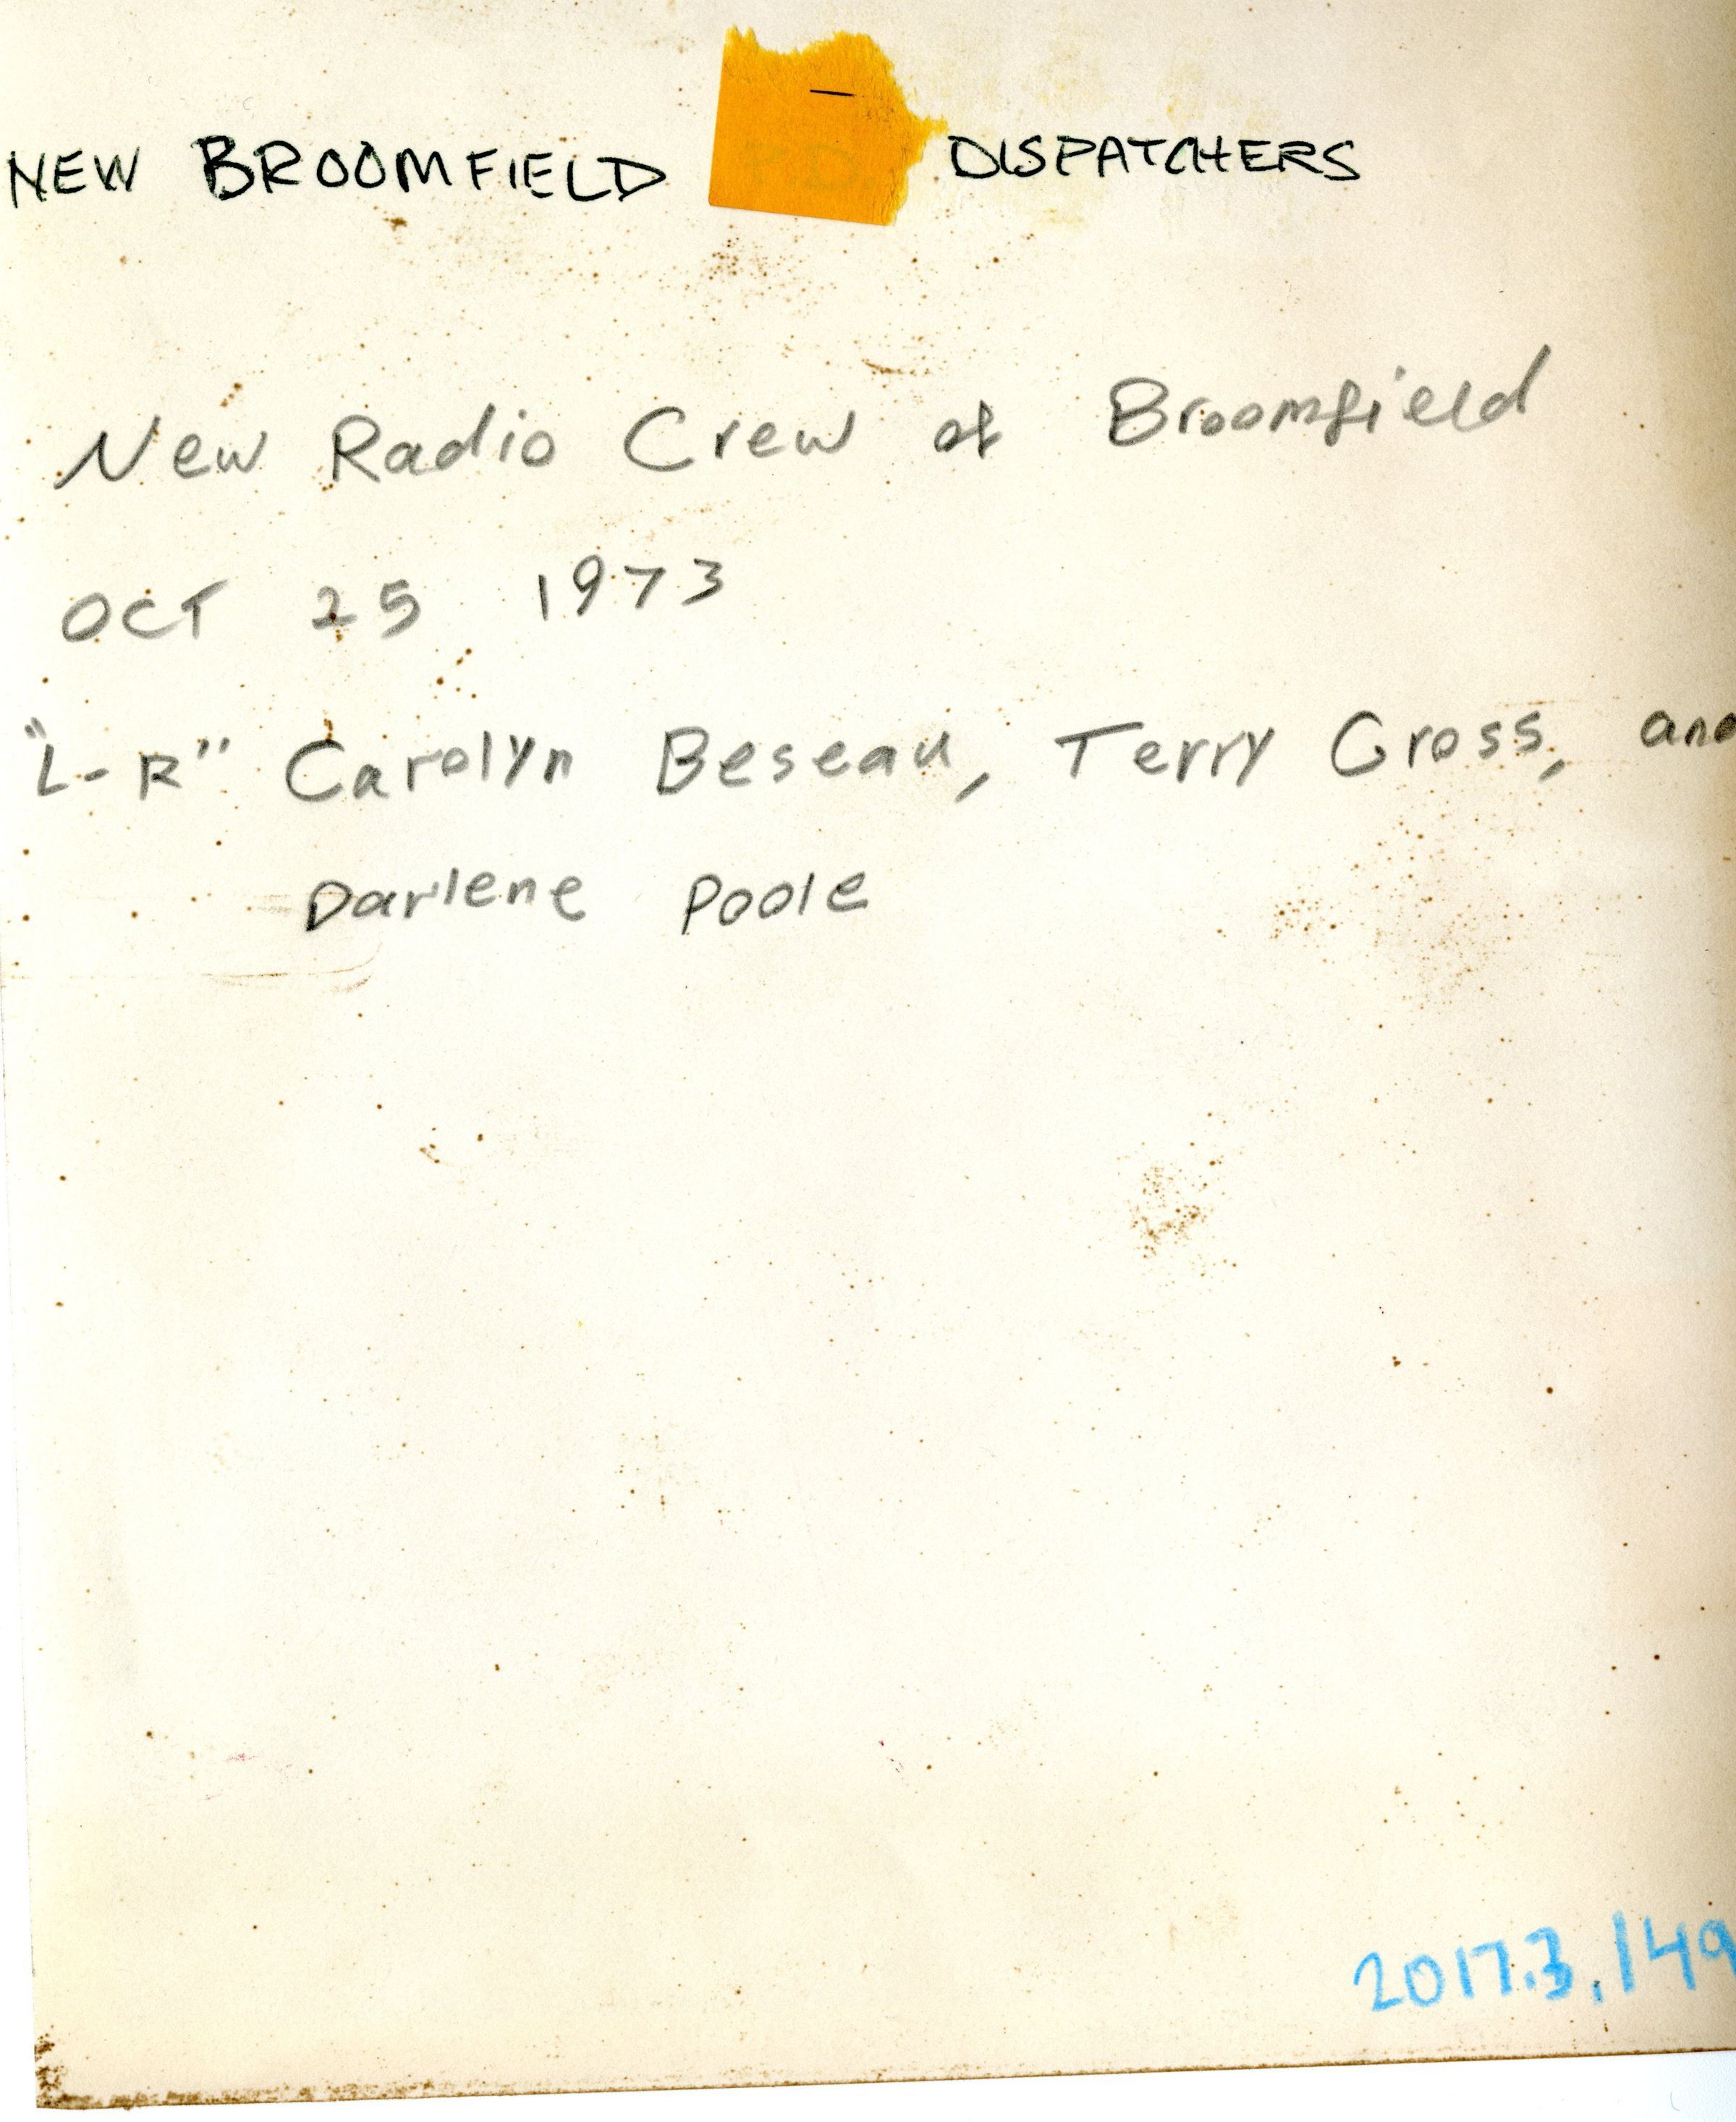 NEW BROOMFIELD P.D. DISPATCHERS
New Radio Crew of Broomfield
OCT 25 1973
"L-R" Carolyn Beseau, Terry Gross, and
Darlene Poole
2017.3.149